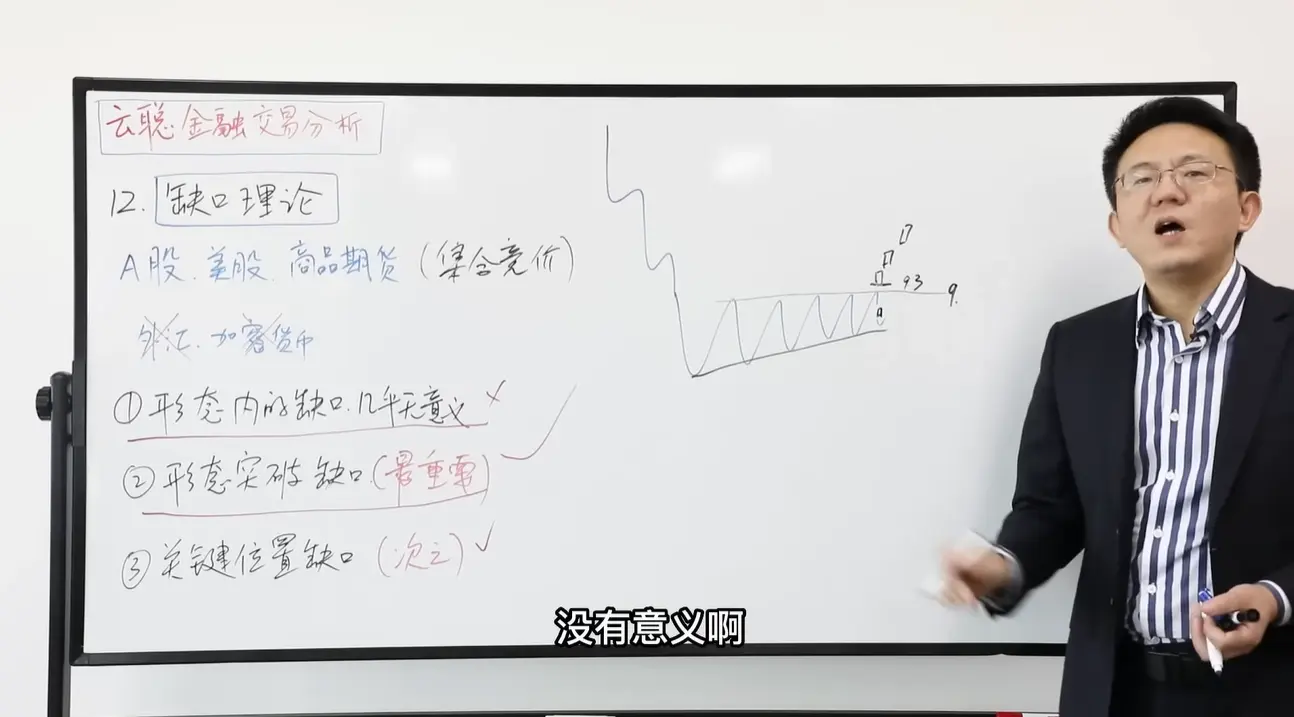 云聪金融交易分析
12. 缺口理论
A股、美股、商品期货(集合竞价)
外汇、加密货币
①形态内的缺口.几乎无意义 ×
②形态突破缺口(最重要) ✓
③关键位置缺口(次之) ✓
93
9.
没有意义啊